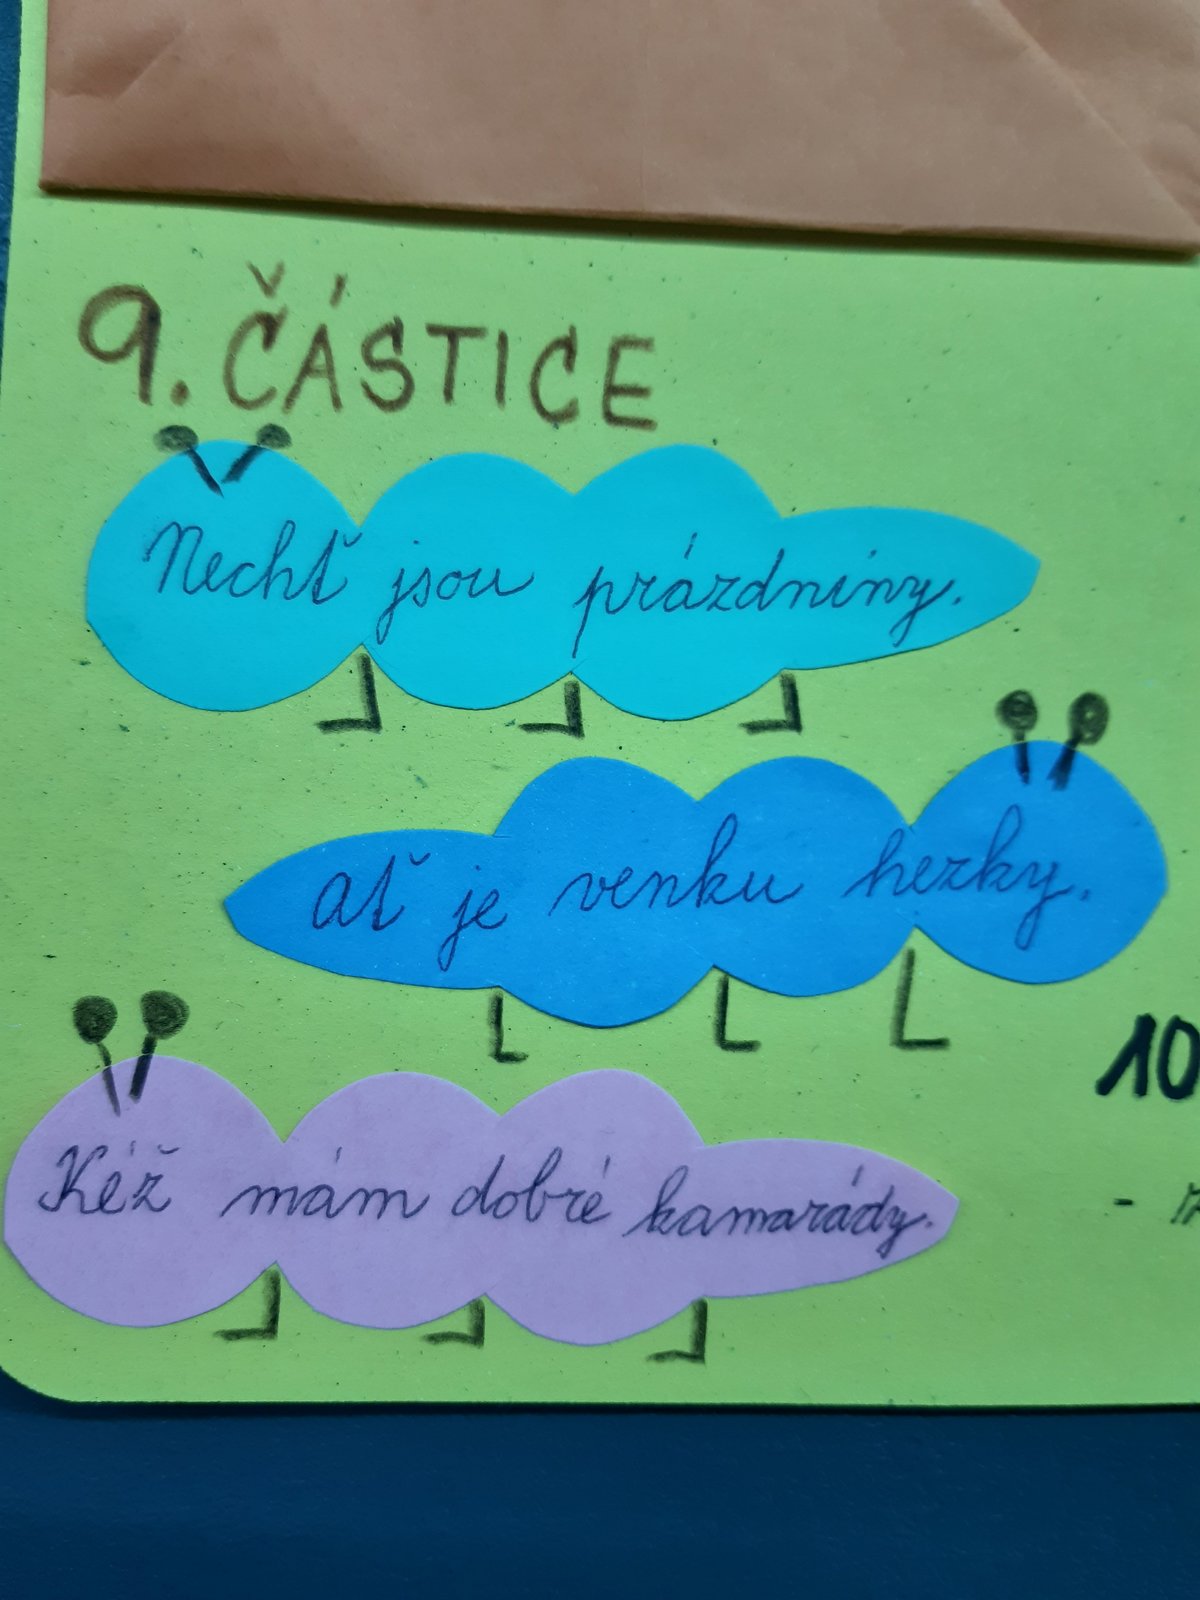 9. ČÁSTICE
Nechť jsou prázdniny.
Ať je venku hezky.
Kéž mám dobré kamarády.
10